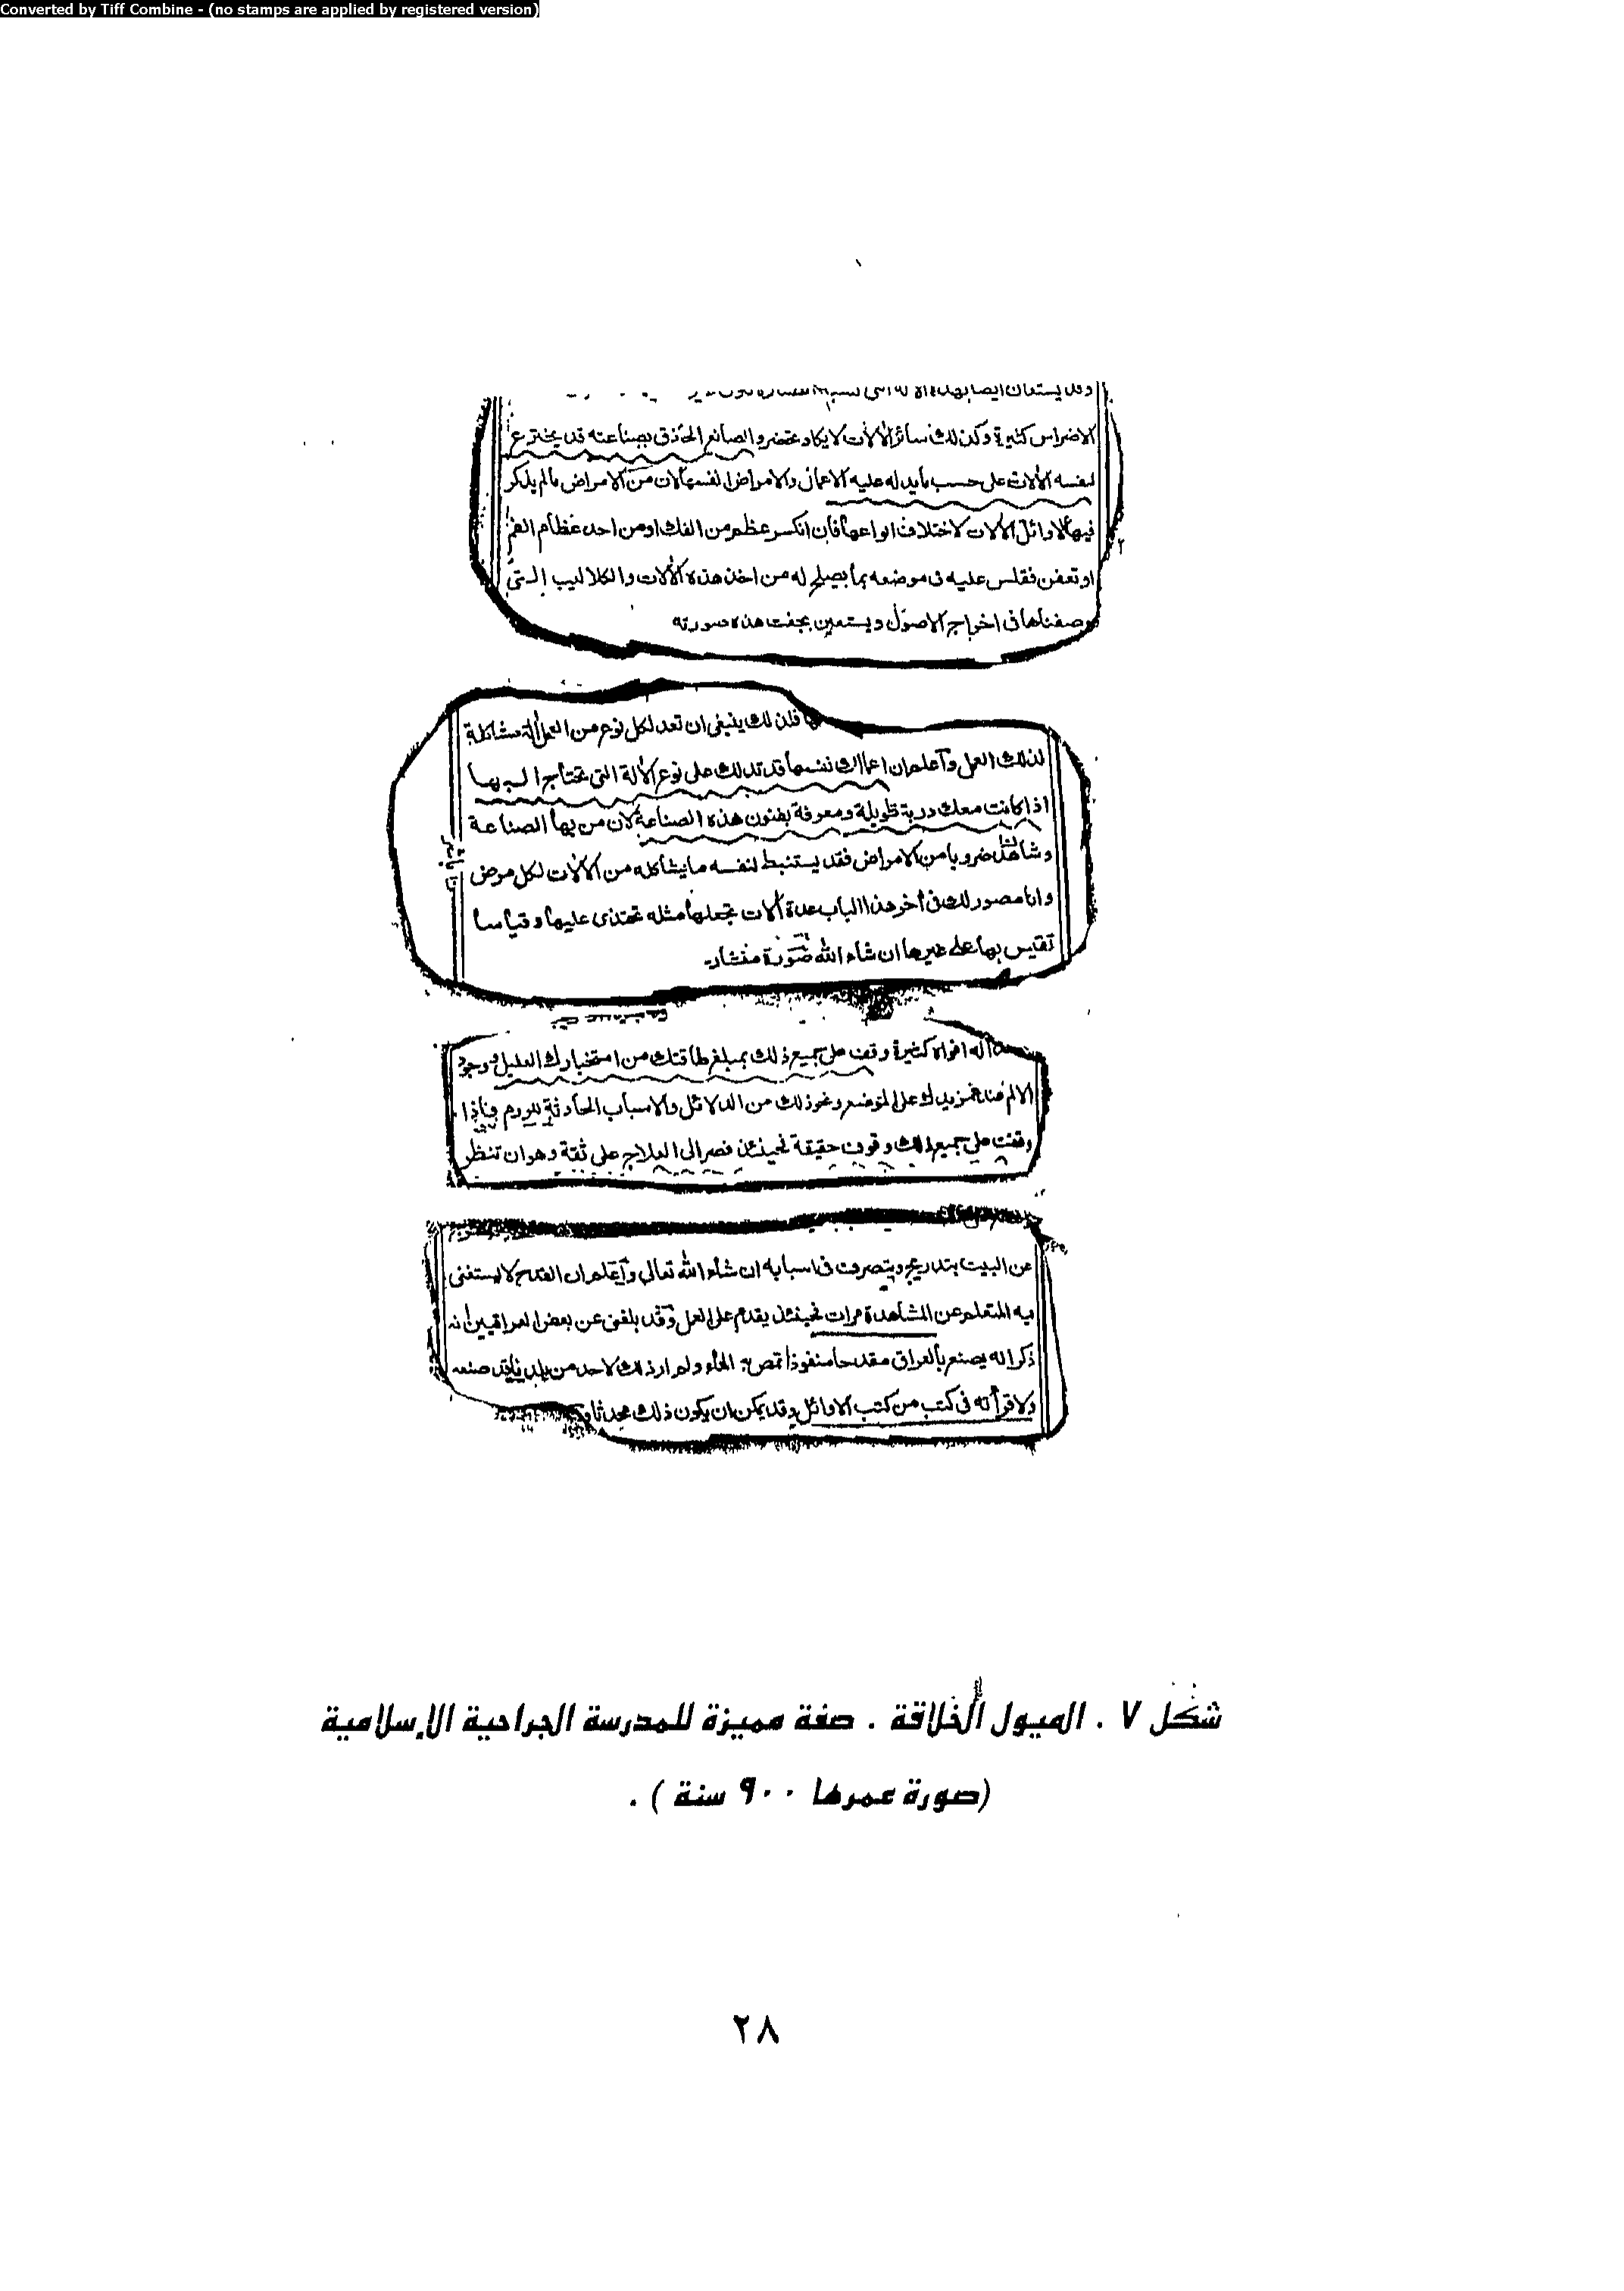 Converted by Tiff Combine - (no stamps are applied by registered version)
وقد يستعان ايضا بهذه الالة التى
الاضراس كثيرة وكذلك سائر الالات لا يكاد تحضر والصانع الحاذق بصناعته قد يخترع
لنفسه الالات على حسب ما يدله عليه الاعمال والامراض انفسها لان من الامراض مالم يذكر
فيها الاوائل الالات لاختلاف انواعها فان انكسر عظم من الفك او من احد عظام الفم
او تعفن فقلس عليه فى موضعه بما يصلح له من اخذ هذه الالات والكلاليب التى
وصفناها فى اخراج الاصول ويستعين بجفت هذه صورته
فلذلك ينبغى ان تعد لكل نوع من العمل الة مشاكلة
لذلك العمل واعلم ان اعمالك نفسها قد تدلك على نوع الالة التى تحتاج اليها
اذا كانت معك دربة طويلة ومعرفة بفنون هذه الصناعة لان من بها الصناعة
وشاهد ضروبا من الامراض فقد يستنبط لنفسه ما يشاكله من الالات لكل مرض
وانا مصور لك فى أخر هذا الباب عدة ألات تجعلها مثله تحتذى عليها وقياسا
تقيس بها على غيرها ان شاء الله صورة منشار
اله افواه كثيرة وقف على جميع ذلك بمبلغ طاقتك من استخبارك العليل ووجود
الالم عند غمز يدك على الموضع ونحو ذلك من الدلائل والاسباب الحادثة للورم فاذا
وقفت على جميع ذلك وقوف حقيقة فحينئذ فصر الى العلاج على ثقة وهو ان تنظر
عن البيت بتدريج ويتصرف فى اسبابه ان شاء الله تعالى واعلم ان القدح لا يستغنى
فيه المتعلم عن المشاهدة مرات فحينئذ يقدم على العمل وقد بلغنى عن بعض العراقيين انه
ذكر انه يصنع بالعراق مقدحا منفوذا تمص به الماء ولم ار ذلك لاحد من بلدنا قد صنعه
ولا قرأته فى كتب من كتب الاوائل وقد يمكن ان يكون ذلك محدثا
شكل ٧ . الميول الخلاقة . صفة مميزة للمدرسة الجراحية الإسلامية
(صورة عمرها ٩٠٠ سنة ) .
٢٨